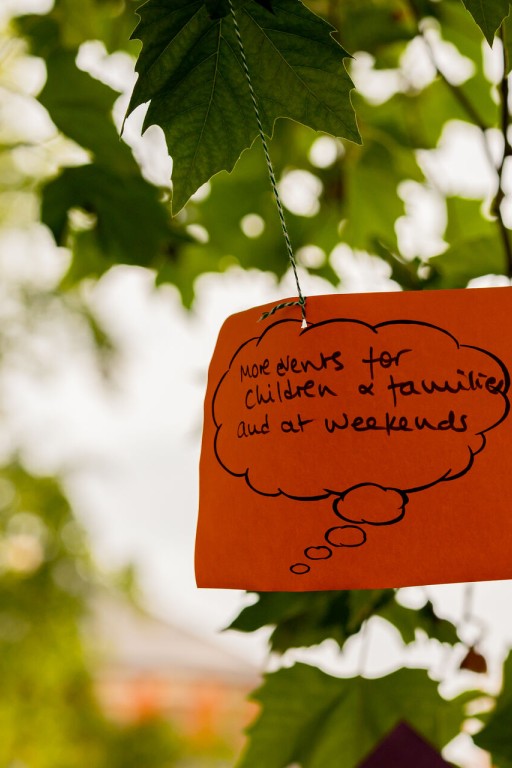 More events for
children & families
and at weekends